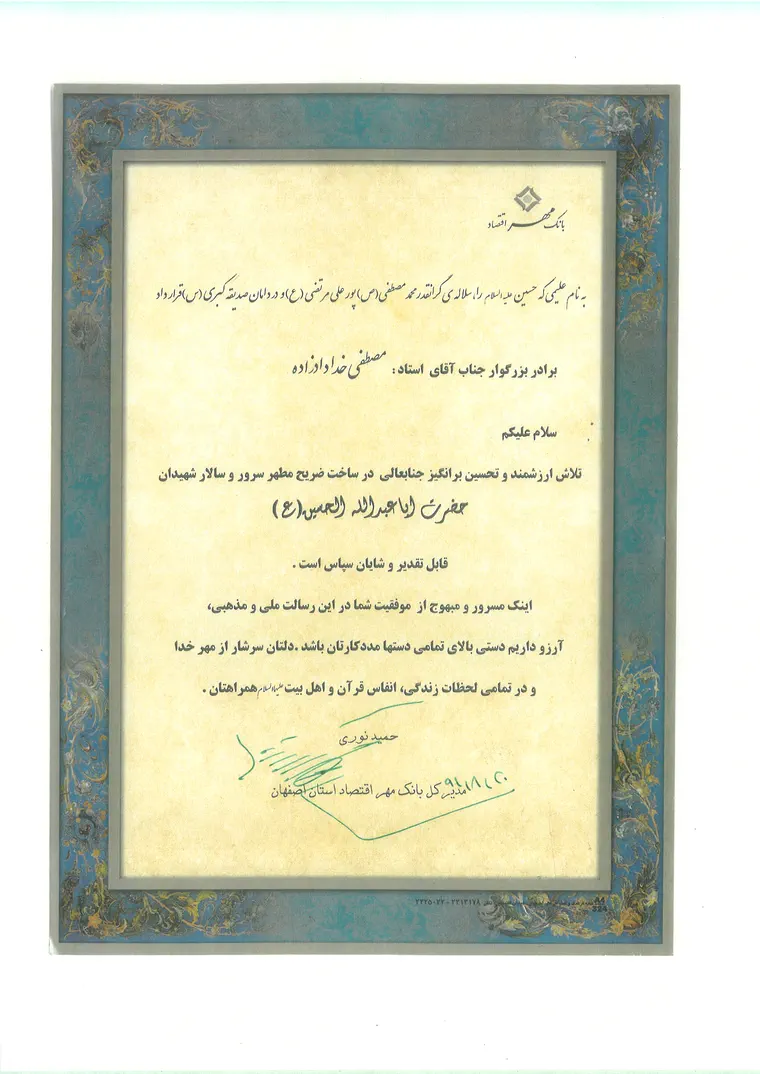 بانک مهر اقتصاد
به نام علیمی که حسین علیه السلام را سلاله ی گرانقدر محمد مصطفی (ص) پور علی مرتضی (ع) و در دامان صدیقه کبری (س) قرار داد
برادر بزرگوار جناب آقای استاد : مصطفی خدادادزاده
سلام علیکم
تلاش ارزشمند و تحسین برانگیز جنابعالی در ساخت ضریح مطهر سرور و سالار شهیدان
حضرت اباعبدالله الحسین (ع)
قابل تقدیر و شایان سپاس است .
اینک مسرور و مبهوج از موفقیت شما در این رسالت ملی و مذهبی،
آرزو داریم دستی بالای تمامی دستها مددکارتان باشد .دلتان سرشار از مهر خدا
و در تمامی لحظات زندگی، انفاس قرآن و اهل بیت علیهم السلام همراهتان .
حمید نوری
مدیر کل بانک مهر اقتصاد استان اصفهان
۲۲۲۵۰۲۲ - ۲۲۱۲۱۷۸